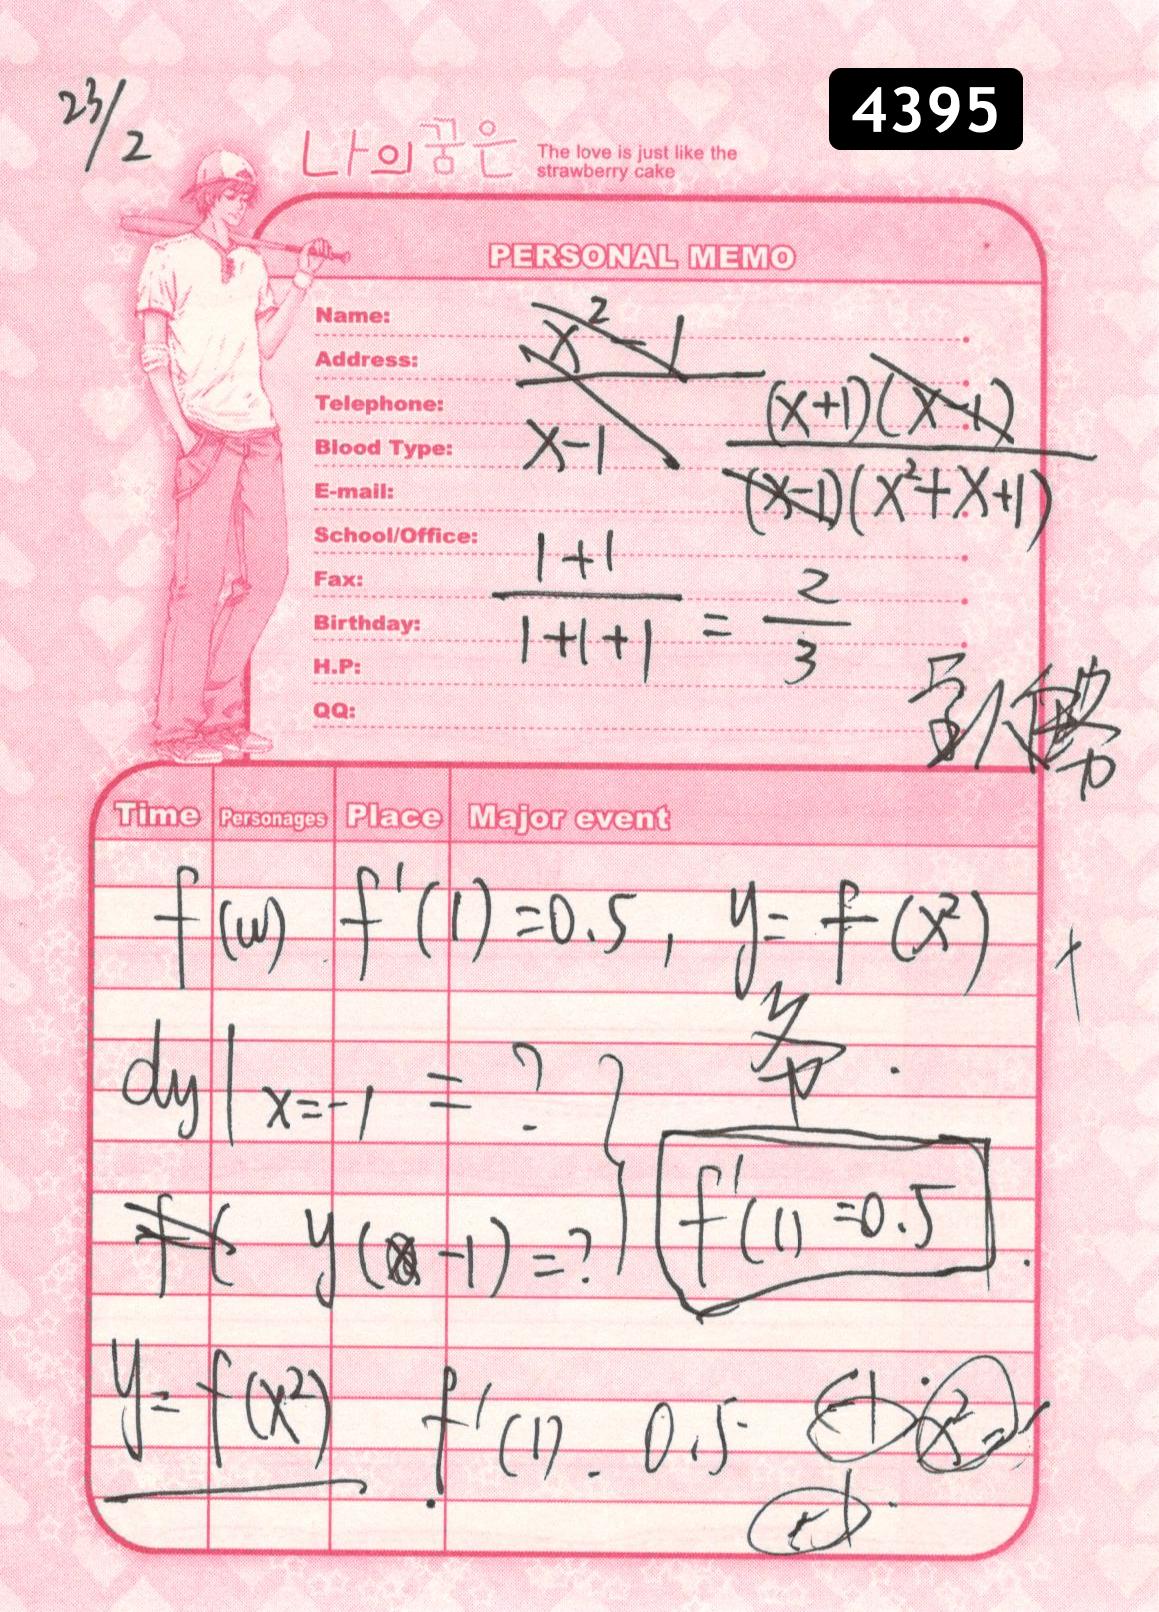 23/2
4395
나의꿈은
The love is just like the
strawberry cake
PERSONAL MEMO
Name:
Address:
Telephone:
Blood Type:
E-mail:
School/Office:
Fax:
Birthday:
H.P:
QQ:
x² - 1
x-1
(x+1)(x-1)
(x-1)(x²+x+1)
1+1
1+1+1
= 2
3
Time Personages Place Major event
f(u) f'(1)=0.5, y= f(x²)
dy|x=-1 = ?
f( y(-1)=?
f'(1)=0.5
y= f(x²) f'(1). 0.5 x²=